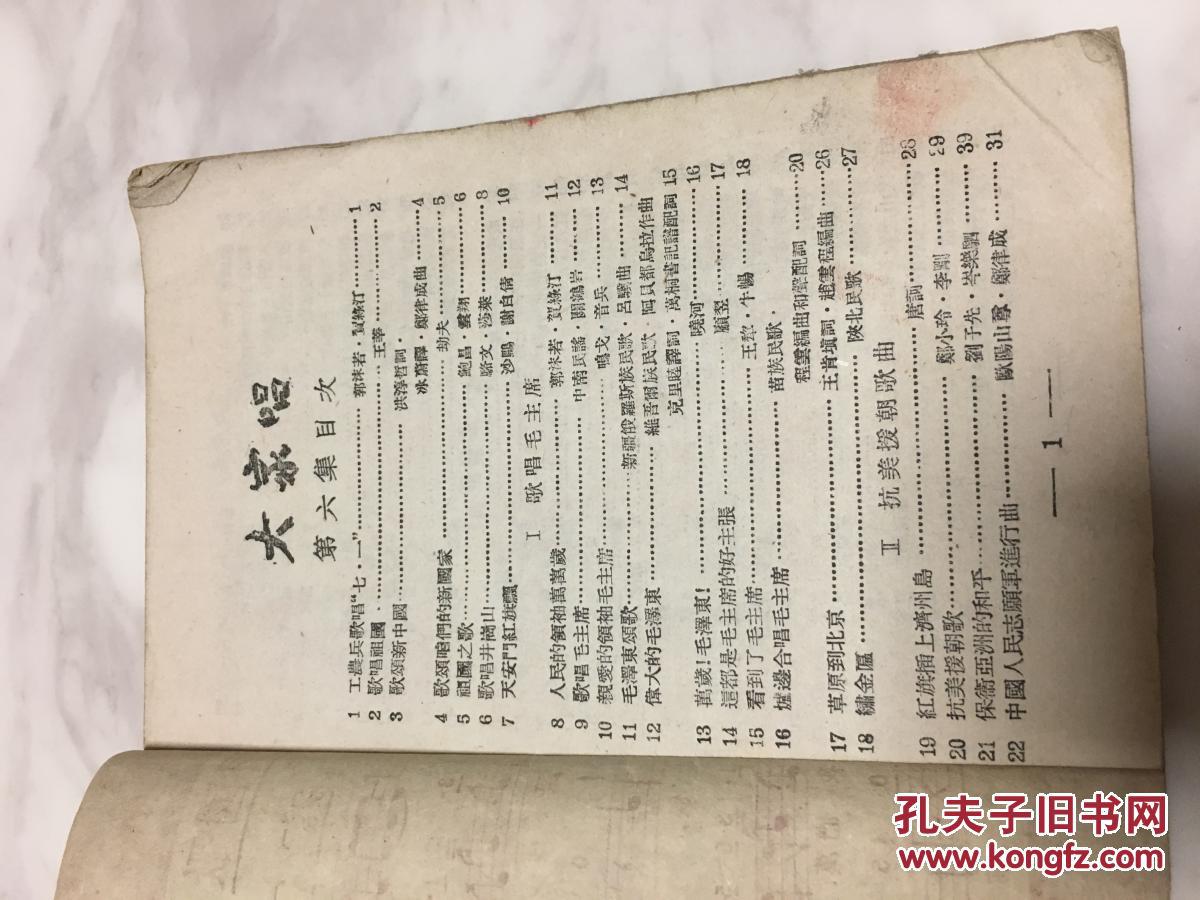 大家唱
第六集目次
1 工農兵歌唱“七·一”…………郭沫若·賀綠汀…………1
2 歌唱祖國…………王莘…………2
3 歌頌新中國…………洪淳哲詞·
鄭律成曲…………4
4 歌頌咱們的新國家…………劫夫…………5
5 祖國之歌…………鮑昌·雲翔…………6
6 歌唱井崗山…………駱文·莎萊…………8
7 天安門紅旗飄…………沙鷗·謝白倩…………10
I 歌唱毛主席
8 人民的領袖萬萬歲…………郭沫若·賀綠汀…………11
9 歌唱毛主席…………中南民謠·關鴻岩…………12
10 親愛的領袖毛主席…………鳴戈·音兵…………13
11 毛澤東頌歌…………新疆俄羅斯族民歌·呂驥曲…………14
12 偉大的毛澤東…………維吾爾族民歌·阿貝都烏拉作曲
克里睦譯詞·萬桐書記譜配詞 15
13 萬歲!毛澤東!…………曉河…………16
14 這都是毛主席的好主張…………顧翌…………17
15 看到了毛主席…………王犂·牛暢…………18
16 爐邊合唱毛主席…………苗族民歌·
程雲編曲和聲配詞…………20
17 草原到北京…………主肯塡詞·趙雲程編曲…………26
18 繡金匾…………陝北民歌…………27
II 抗美援朝歌曲
19 紅旗插上濟州島…………唐訶…………28
20 抗美援朝歌…………鄭小玲·李剛…………29
21 保衞亞洲的和平…………劉子先·岑樂駟…………39
22 中國人民志願軍進行曲…………歐陽山尊·鄭律成…………31
— 1 —
孔夫子旧书网
www.kongfz.com